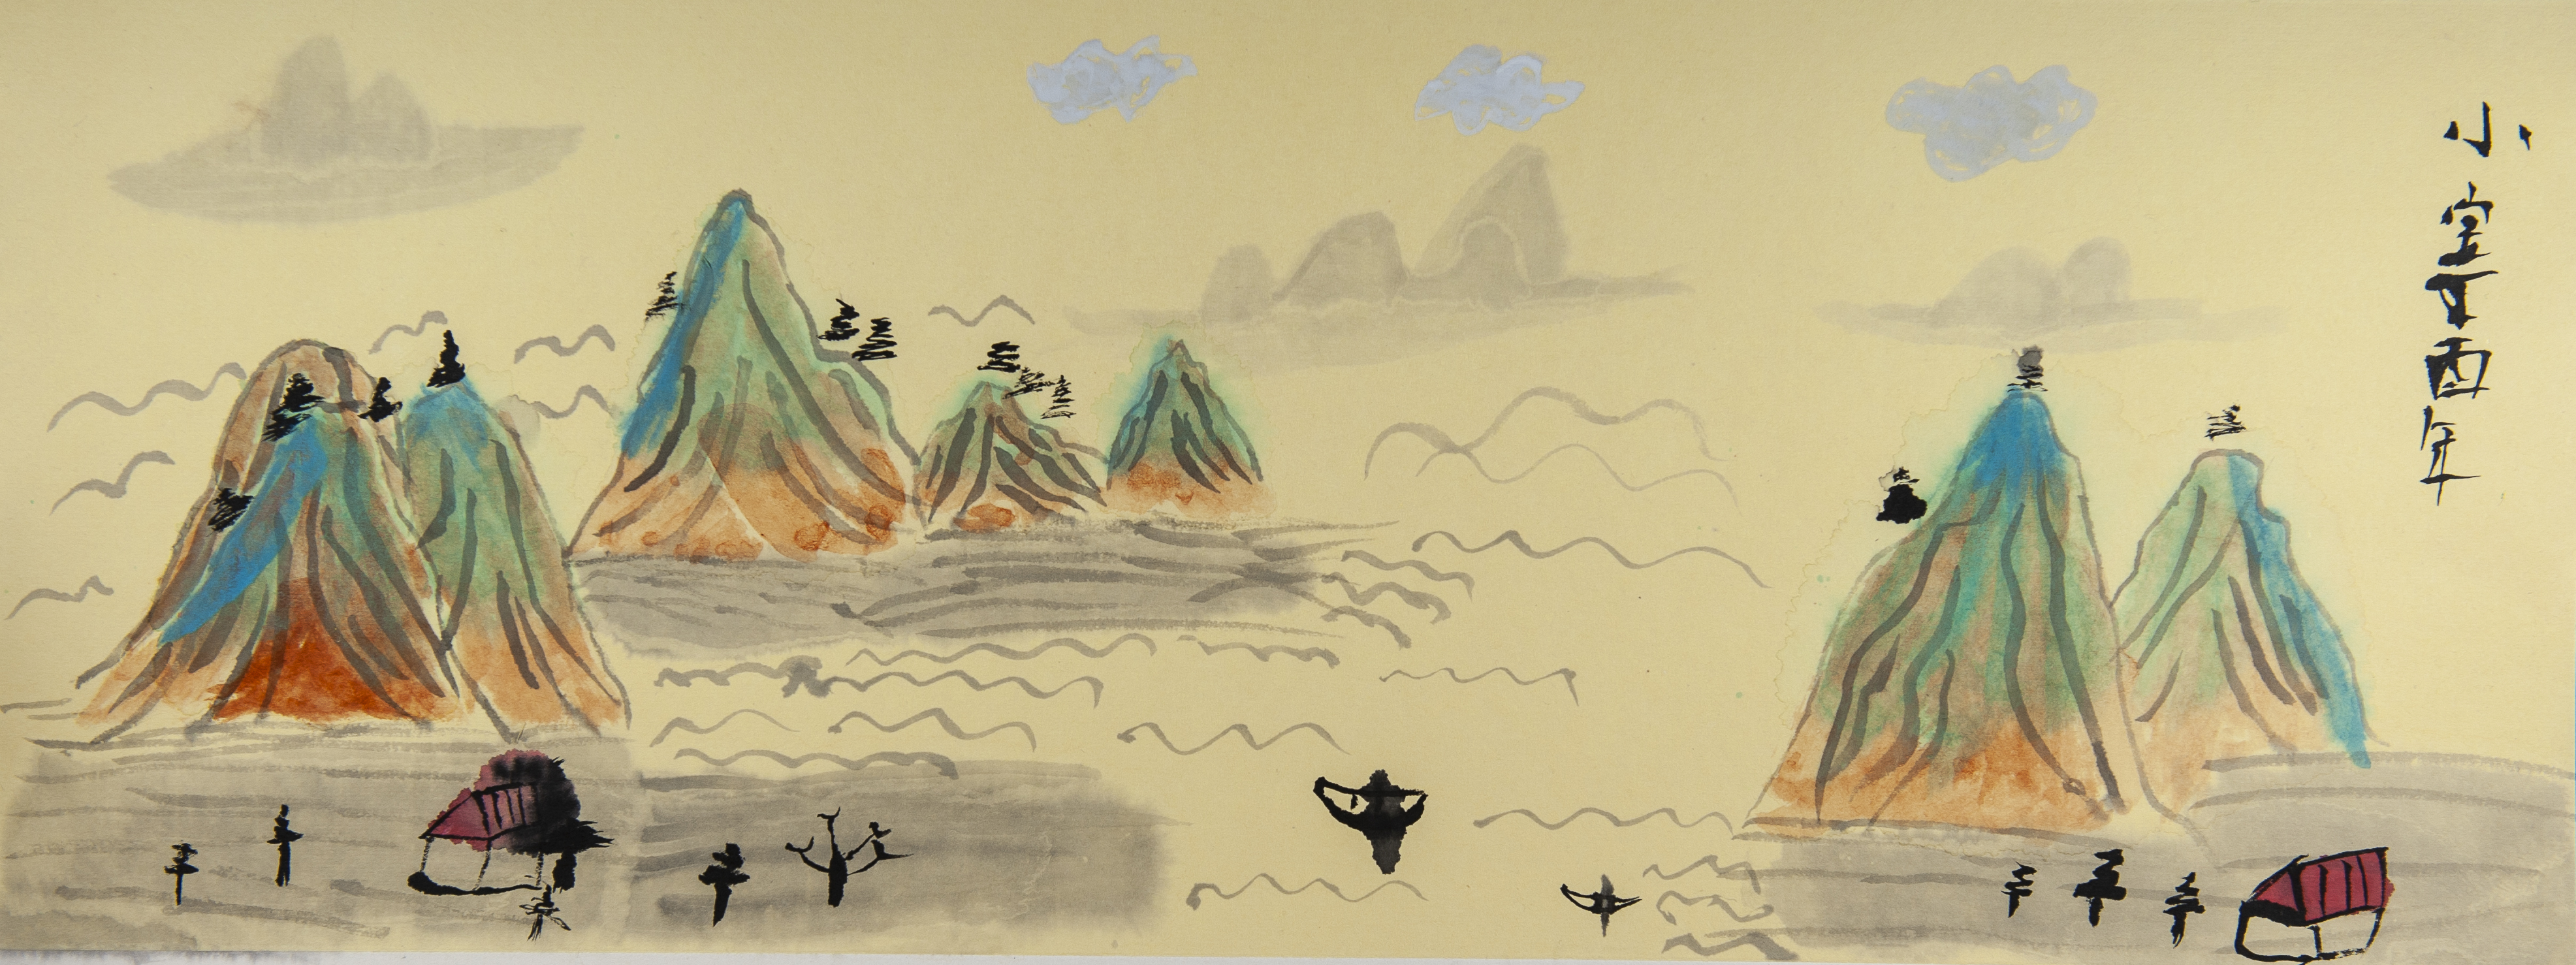 小宝丁酉年